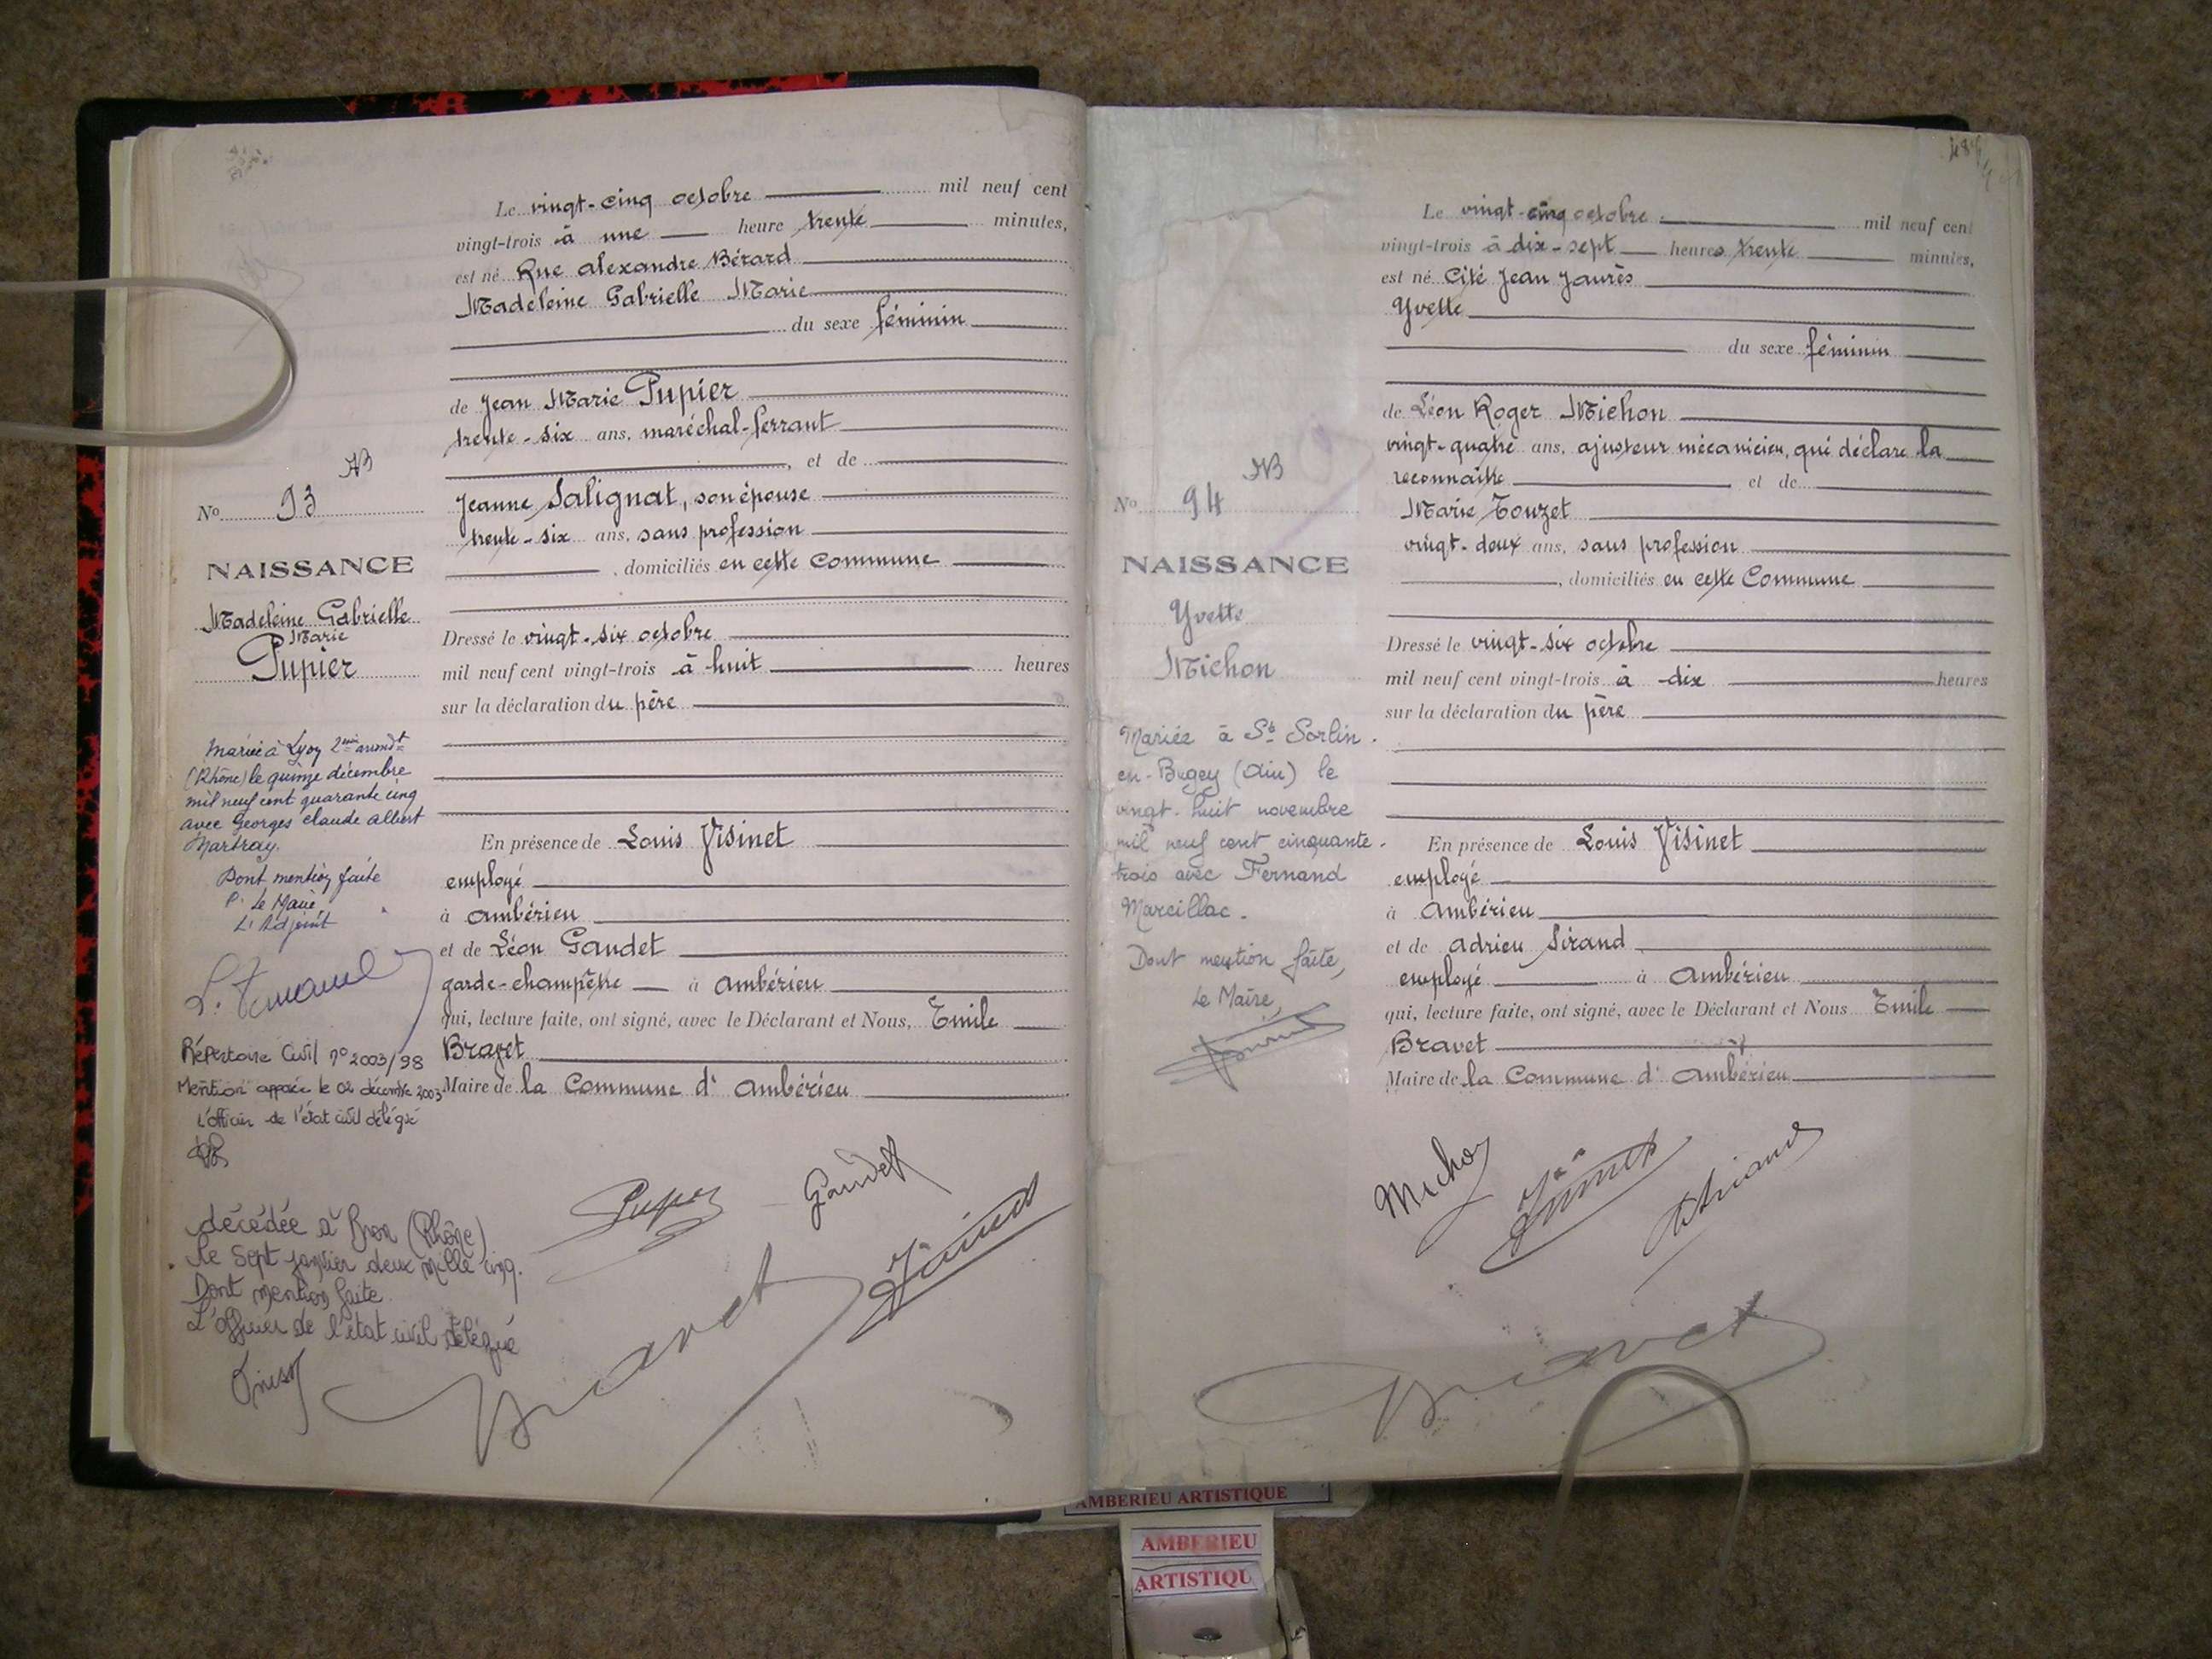 Le vingt-cinq octobre mil neuf cent
vingt-trois à une heure trente minutes,
est né Rue Alexandre Bérard
Madeleine Gabrielle Marie
du sexe féminin
de Jean Marie Pupier
trente-six ans, maréchal-ferrant
, et de
Jeanne Salignat, son épouse
trente-six ans, sans profession
, domiciliés en cette Commune
Dressé le vingt-six octobre
mil neuf cent vingt-trois à huit heures
sur la déclaration du père
En présence de Louis Visinet
employé
à Ambérieu
et de Léon Gaudet
garde-champêtre à Ambérieu
qui, lecture faite, ont signé, avec le Déclarant et Nous, Emile
Bravet
Maire de la Commune d'Ambérieu
NB
No 93
NAISSANCE
Madeleine Gabrielle
Marie
Pupier
Mariée à Lyon 2eme arrondt
(Rhône) le quinze décembre
mil neuf cent quarante cinq
avec Georges Claude Albert
Martray.
Dont mention faite
P. Le Maire
L'Adjoint
Répertoire Civil n° 2003/98
Mention apposée le 02 décembre 2003
L'officier de l'état civil délégué
décédée à Bron (Rhône)
le sept janvier deux mille cinq.
Dont mention faite
L'officier de l'état civil délégué
Pupier
Gaudet
Visinet
Bravet
Le vingt-cinq octobre mil neuf cent
vingt-trois à dix-sept heures trente minutes,
est né Cité Jean Jaurès
Yvette
du sexe féminin
de Léon Roger Michon
vingt-quatre ans, ajusteur mécanicien, qui déclare la
reconnaître et de
Marie Touzet
vingt-deux ans, sans profession
, domiciliés en cette Commune
Dressé le vingt-six octobre
mil neuf cent vingt-trois à dix heures
sur la déclaration du père
En présence de Louis Visinet
employé
à Ambérieu
et de Adrien Sirand
employé à Ambérieu
qui, lecture faite, ont signé, avec le Déclarant et Nous Emile
Bravet
Maire de la Commune d'Ambérieu
NB
No 94
NAISSANCE
Yvette
Michon
Mariée à St Sorlin-
en-Bugey (Ain) le
vingt-huit novembre
mil neuf cent cinquante-
trois avec Fernand
Marcillac.
Dont mention faite,
Le Maire,
Michon
Visinet
ASirand
Bravet
AMBERIEU ARTISTIQUE
AMBERIEU
ARTISTIQU